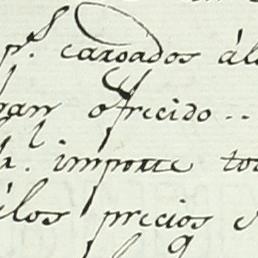 p.^s caroados ál
ran ofrecido..
importe to
élos precios